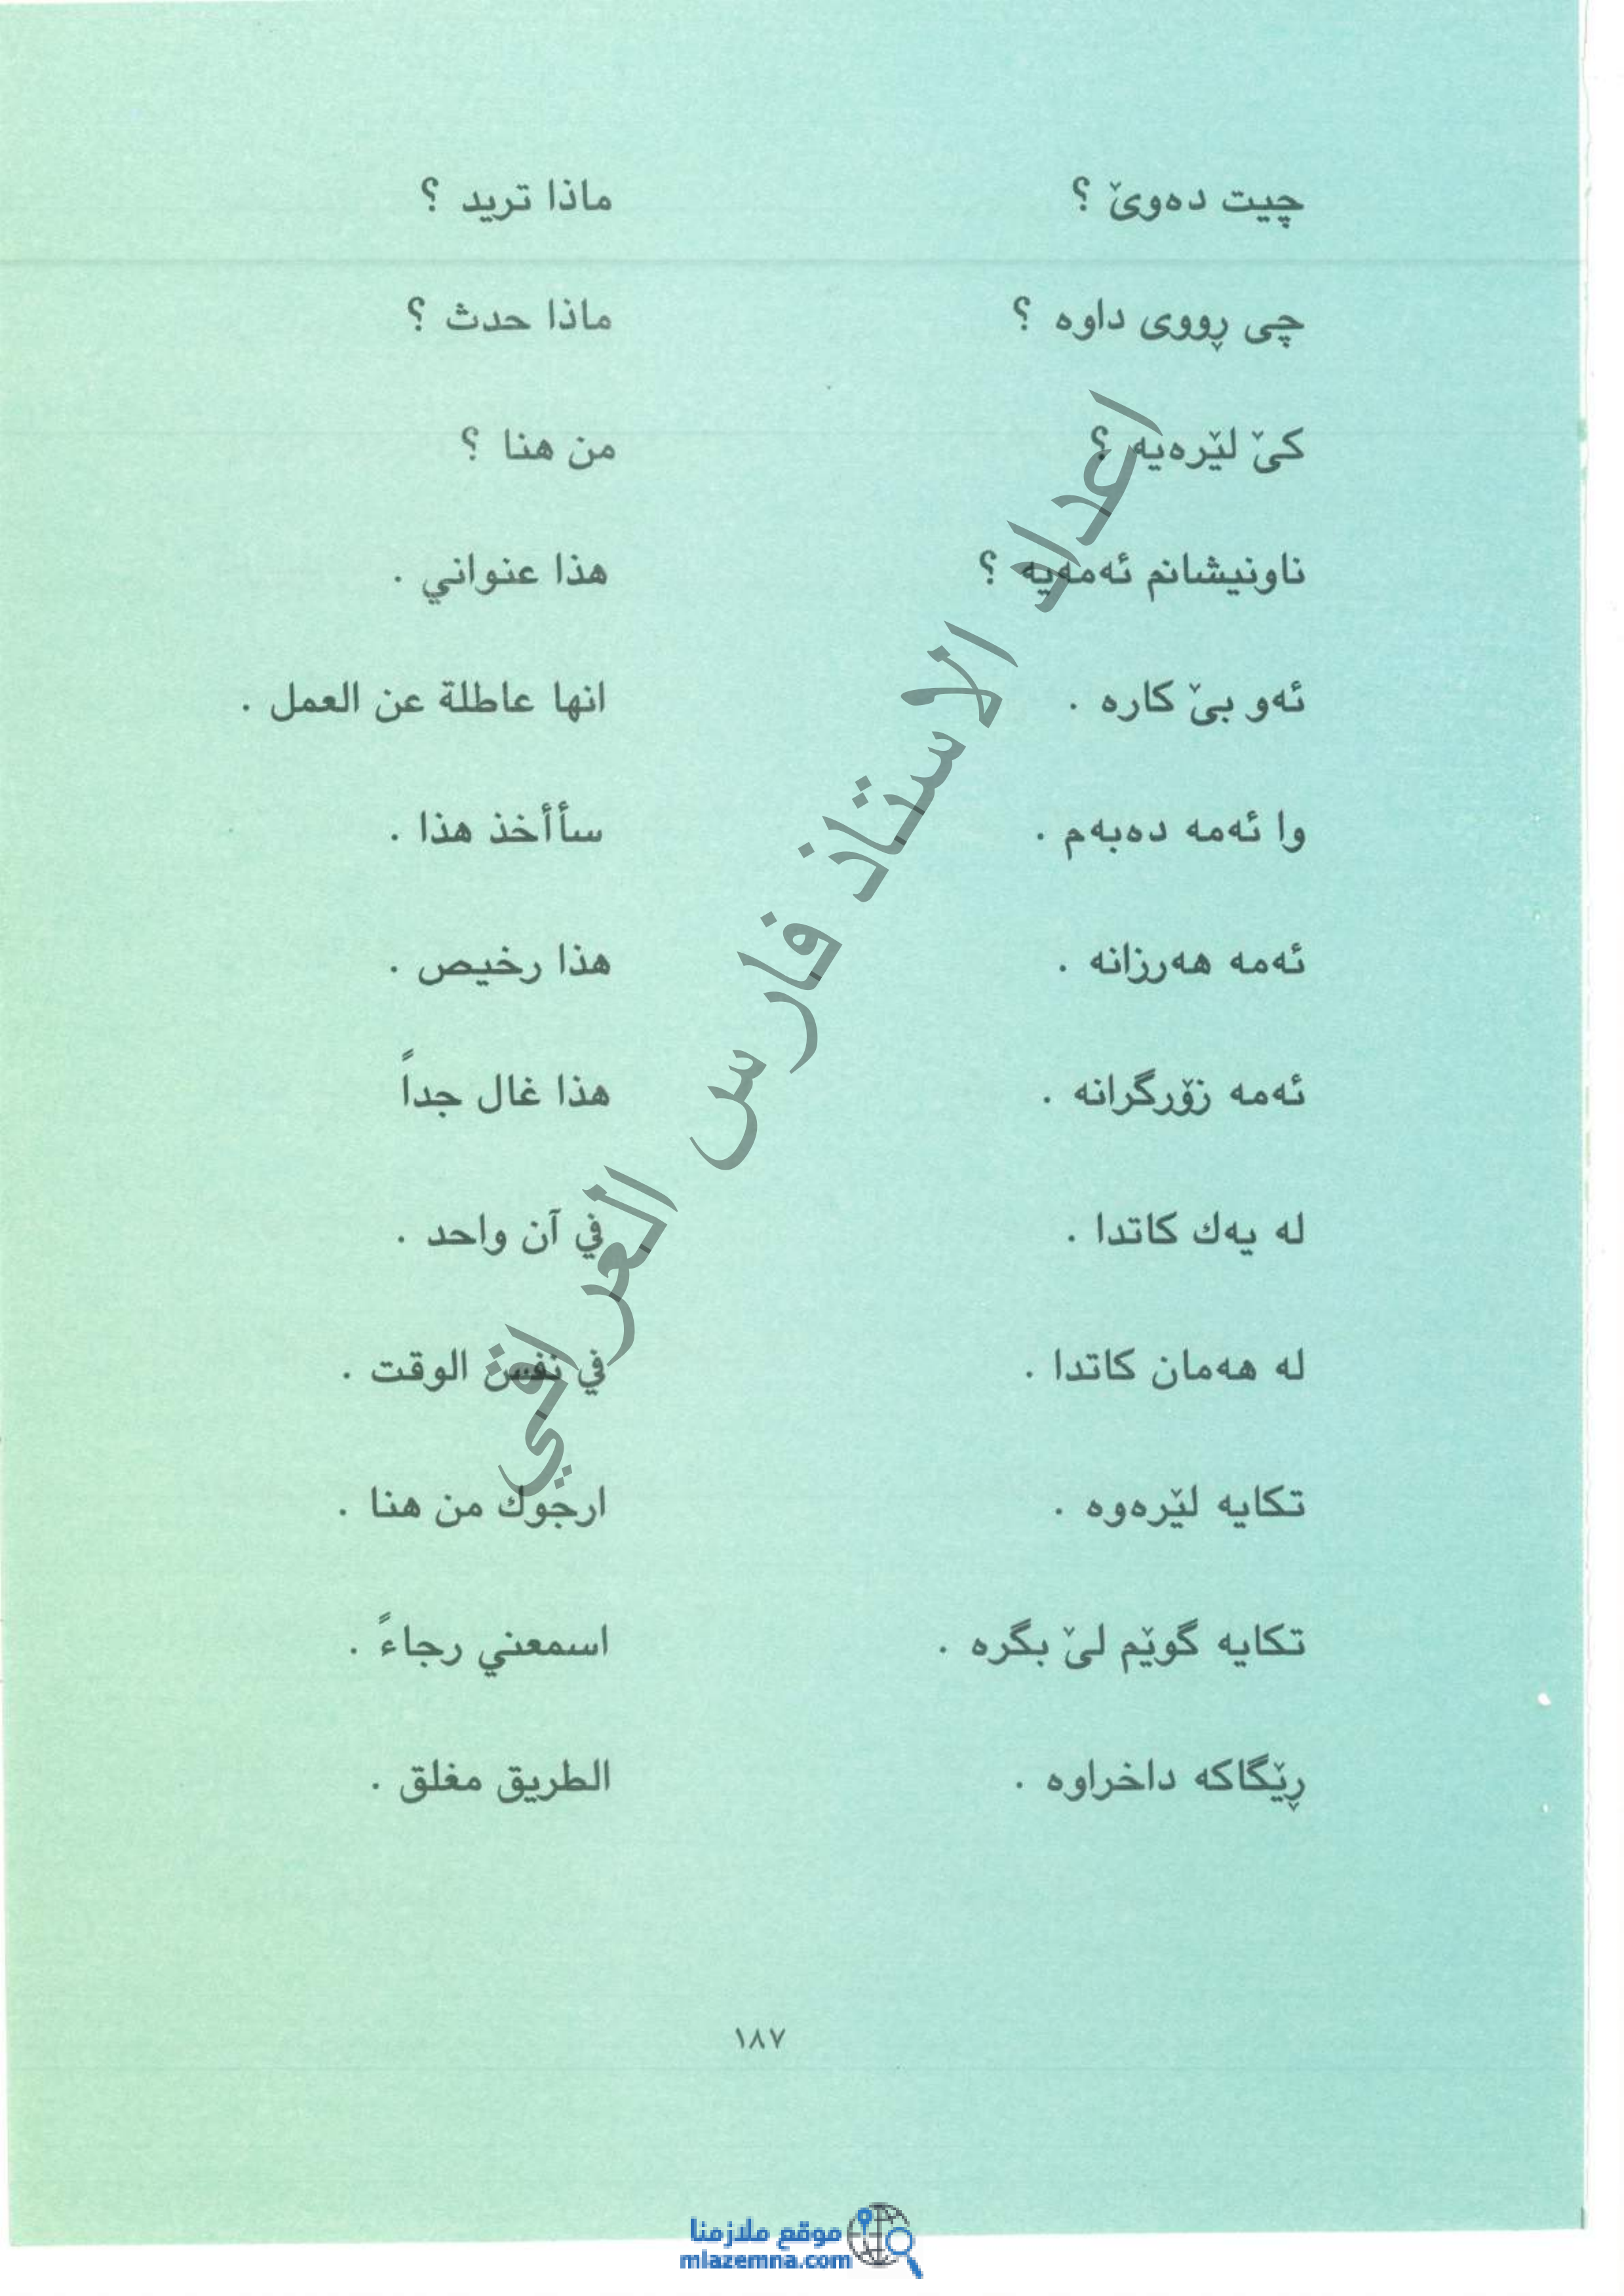 چیت دەوێ ؟ ماذا تريد ؟
چی ڕووی داوە ؟ ماذا حدث ؟
کێ لێرەیە ؟ من هنا ؟
ناونیشانم ئەمەیە ؟ هذا عنواني .
ئەو بێ کارە . انها عاطلة عن العمل .
وا ئەمە دەبەم . سأأخذ هذا .
ئەمە هەرزانە . هذا رخيص .
ئەمە زۆرگرانە . هذا غال جداً
لە یەك کاتدا . في آن واحد .
لە هەمان کاتدا . في نفس الوقت .
تکایە لێرەوە . ارجوك من هنا .
تکایە گوێم لێ بگرە . اسمعني رجاءً .
ڕێگاکە داخراوە . الطريق مغلق .
اعداد الاستاذ فارس العراقي
١٨٧
موقع ملازمنا
mlazemna.com